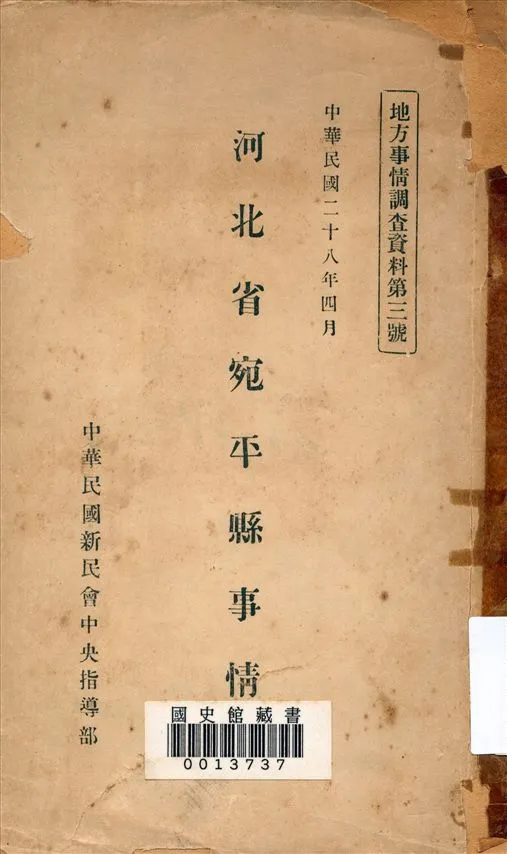 地方事情調查資料第三號
中華民國二十八年四月
河北省宛平縣事情
中華民國新民會中央指導部
國史館藏書
0013737